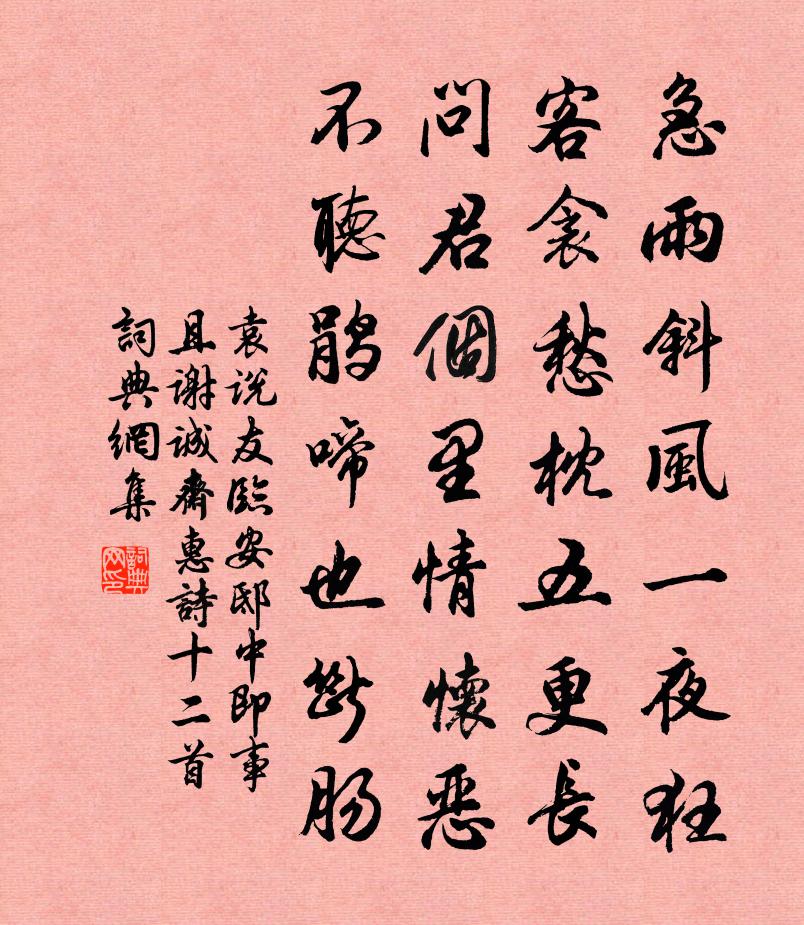 急雨斜風一夜狂
客衾愁枕五更長
問君個里情懷惡
不聽鵑啼也斷腸
袁说友臨安邸中即事
且謝誠齋惠詩十二首
詞典網集
詞典
网印